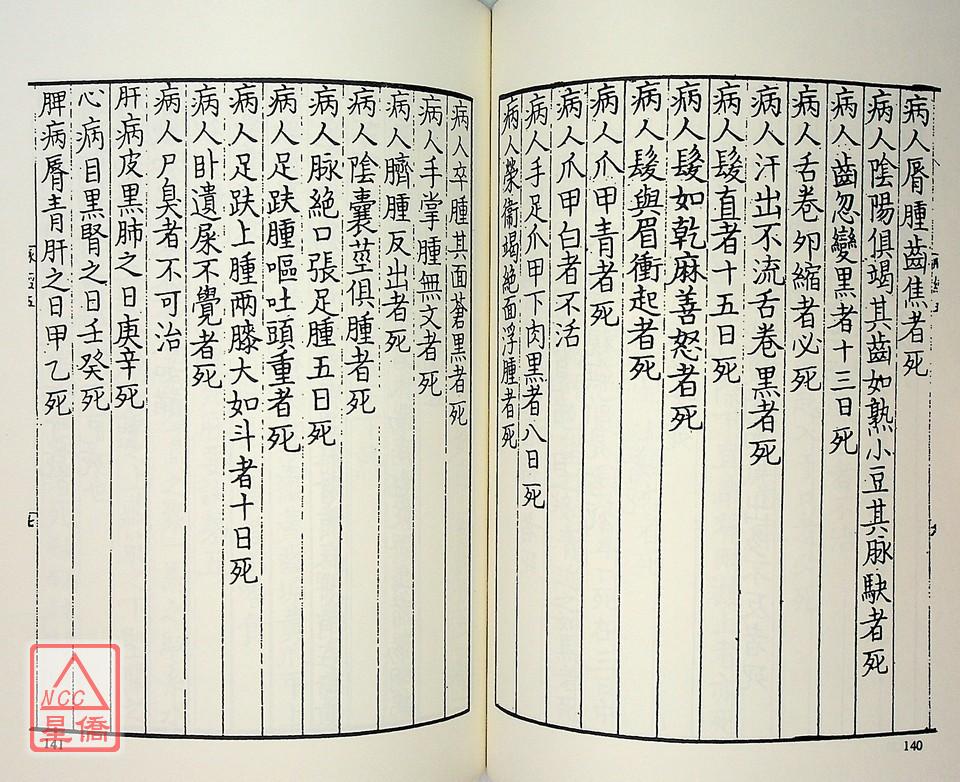 病人脣腫齒焦者死
病人陰陽俱竭其齒如熟小豆其脉駃者死
病人齒忽變黑者十三日死
病人舌卷卵縮者必死
病人汗出不流舌卷黑者死
病人髮直者十五日死
病人髮如乾麻善怒者死
病人髮與眉衝起者死
病人爪甲青者死
病人爪甲白者不活
病人手足爪甲下肉黑者八日死
病人榮衞竭絶面浮腫者死
140
病人卒腫其面蒼黑者死
病人手掌腫無文者死
病人臍腫反出者死
病人陰囊莖俱腫者死
病人脉絶口張足腫五日死
病人足趺腫嘔吐頭重者死
病人足趺上腫兩膝大如斗者十日死
病人卧遺屎不覺者死
病人尸臭者不可治
肝病皮黑肺之日庚辛死
心病目黑腎之日壬癸死
脾病脣青肝之日甲乙死
141
NCC
星僑